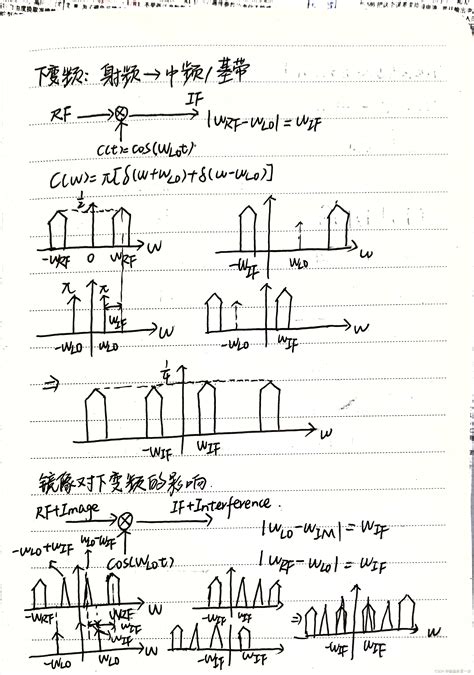 下变频: 射频→中频/基带
RF → ⊗ → IF |ωRF-ωLO|=ωIF
C(t)=cos(ωLOt)
C(ω)=π[δ(ω+ωLO)+δ(ω-ωLO)]
1/2
-ωRF 0 ωRF ω
-ωIF ωLO ω
π π ωIF
-ωLO ωLO ω
-ωLO ωIF ω
⇒ 1/4
-ωIF ωIF ω
镜像对下变频的影响.
RF+Image → ⊗ → IF+Interference.
|ωLO-ωIM|=ωIF
-ωLO+ωIF ωLO-ωIF
cos(ωLOt)
|ωRF-ωLO|=ωIF
-ωRF ωRF ω
-ωIF ωIF
⇒
-ωIF ωIF ω
ωIF
ωIF
-ωLO ωLO ω
-ωIF ωIF